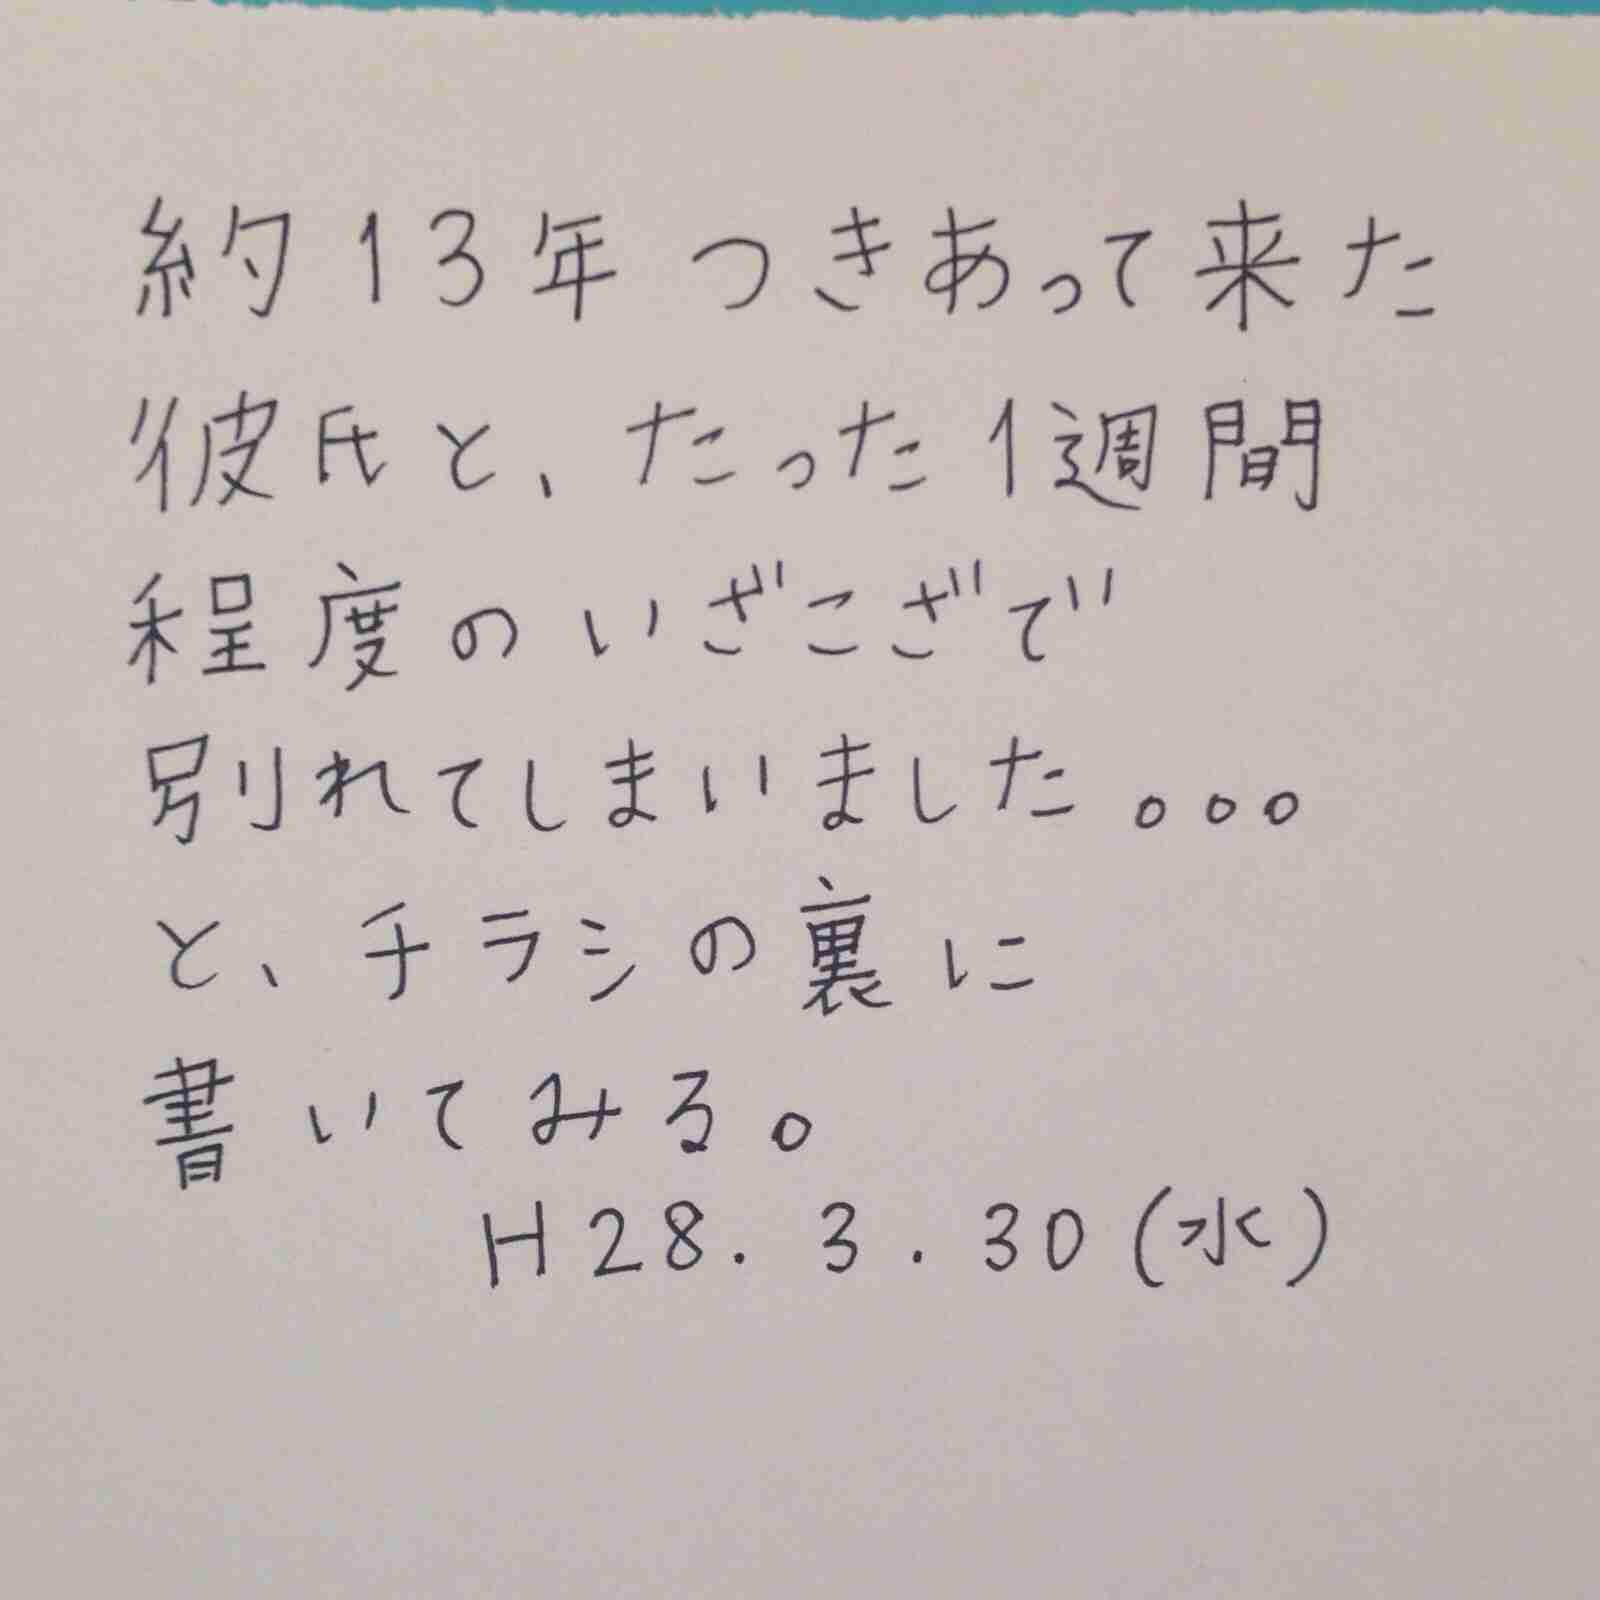 約13年つきあって来た
彼氏と、たった1週間
程度のいざこざで
別れてしまいました。。。
と、チラシの裏に
書いてみる。
H28.3.30(水)